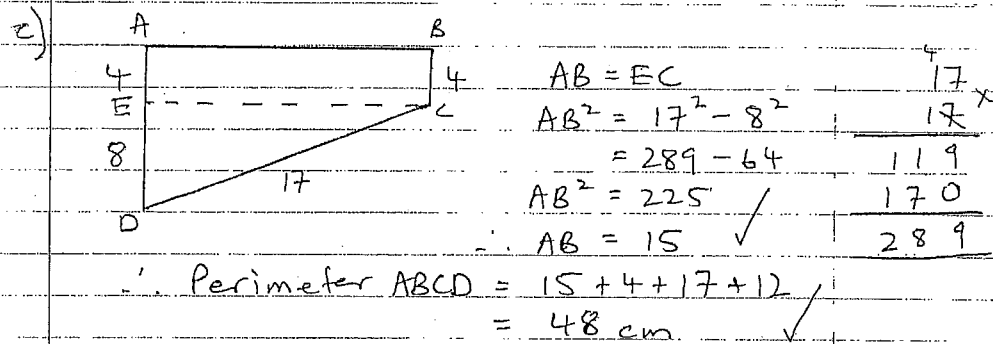 c)
A B
4 4
E C
8
17
D
AB = EC
AB² = 17² - 8²
= 289 - 64
AB² = 225 ✓
∴ AB = 15
∴ Perimeter ABCD = 15 + 4 + 17 + 12
= 48 cm ✓
4
17 ×
17
119
170
289